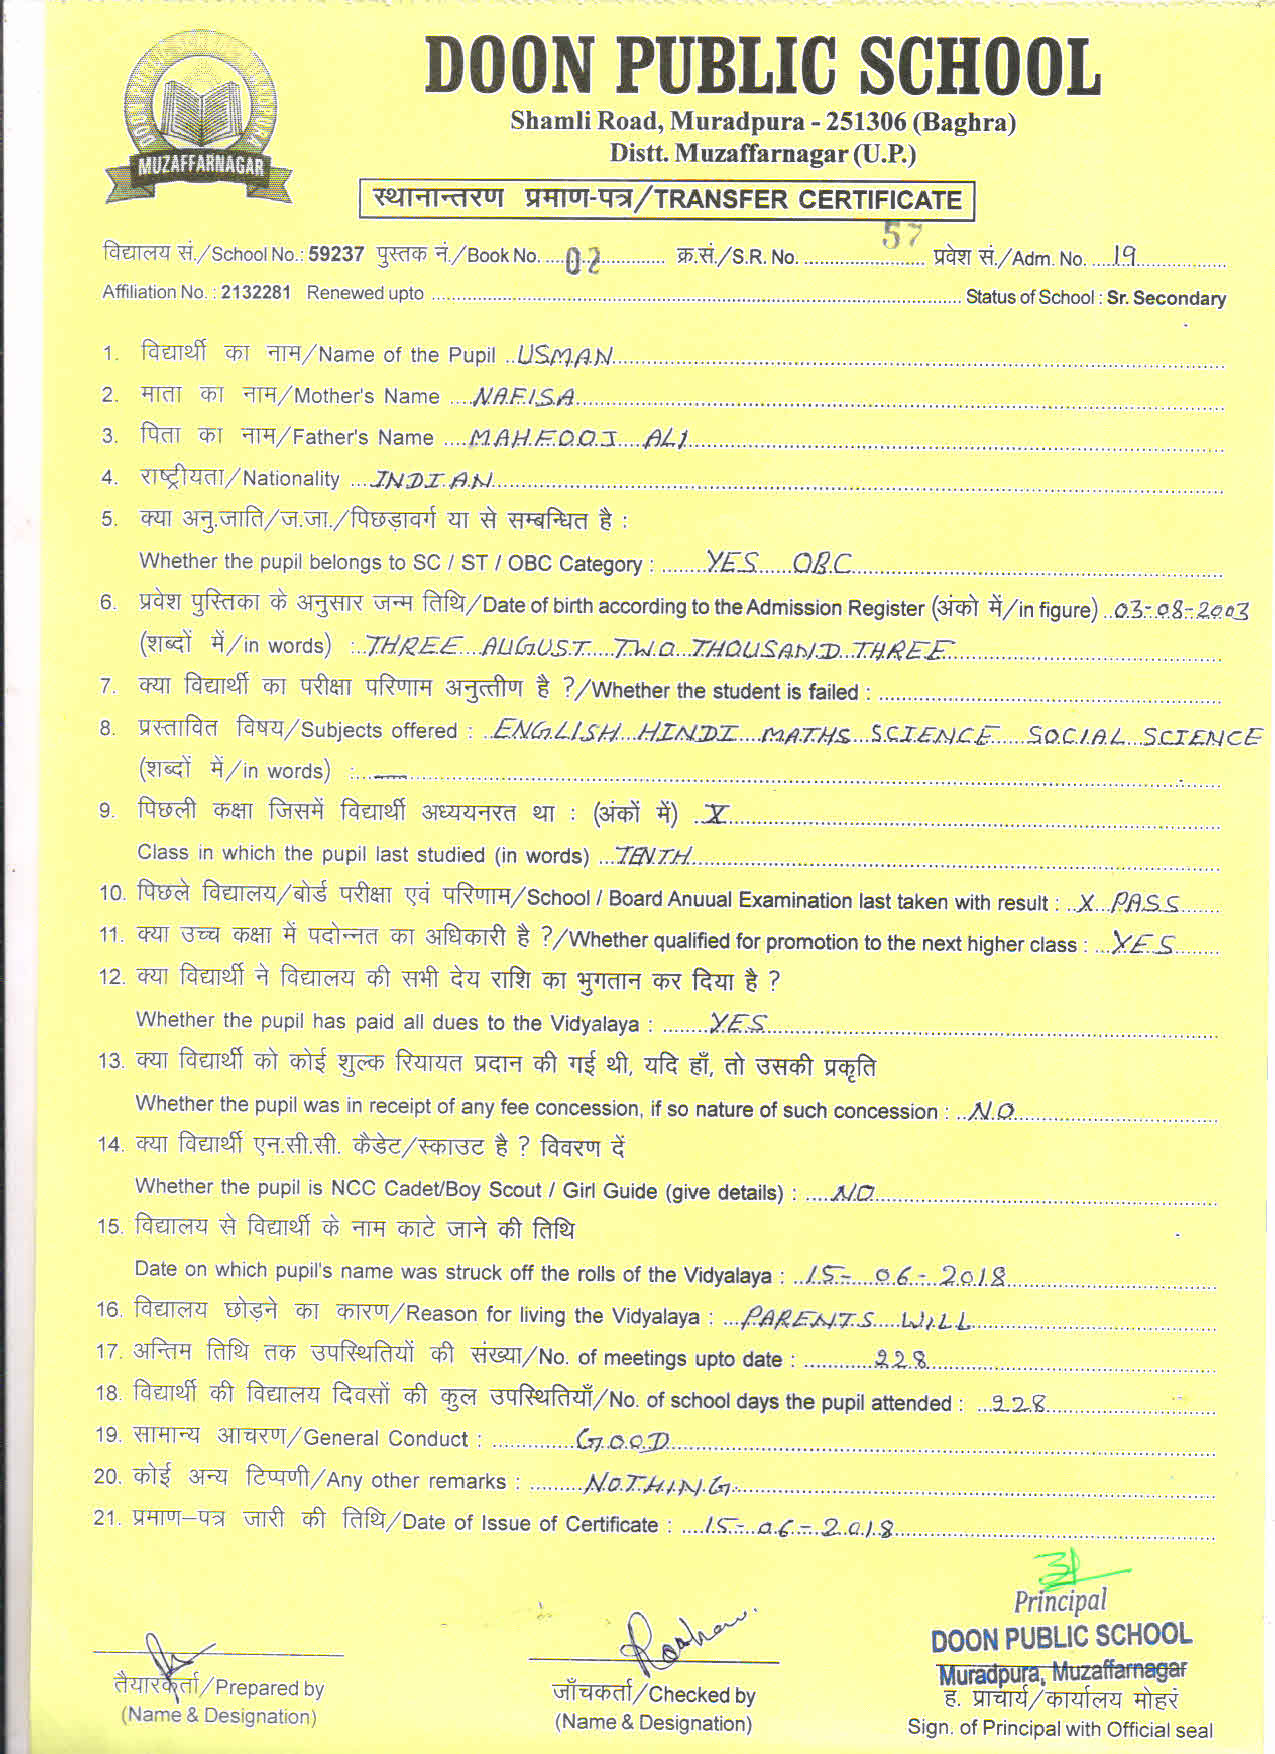 DOON PUBLIC SCHOOL
MUZAFFARNAGAR
Shamli Road, Muradpura - 251306 (Baghra)
Distt. Muzaffarnagar (U.P.)
स्थानान्तरण प्रमाण-पत्र/TRANSFER CERTIFICATE
विद्यालय सं./School No.: 59237 पुस्तक नं./Book No. 02 क्र.सं./S.R. No. 57 प्रवेश सं./Adm. No. 19
Affiliation No. : 2132281 Renewed upto Status of School : Sr. Secondary
1. विद्यार्थी का नाम/Name of the Pupil USMAN
2. माता का नाम/Mother's Name NAFISA
3. पिता का नाम/Father's Name MAHFOOJ ALI
4. राष्ट्रीयता/Nationality INDIAN
5. क्या अनु.जाति/ज.जा./पिछड़ावर्ग या से सम्बन्धित है :
Whether the pupil belongs to SC / ST / OBC Category : YES OBC
6. प्रवेश पुस्तिका के अनुसार जन्म तिथि/Date of birth according to the Admission Register (अंको में/in figure) 03-08-2003
(शब्दों में/in words) : THREE AUGUST TWO THOUSAND THREE
7. क्या विद्यार्थी का परीक्षा परिणाम अनुत्तीण है ?/Whether the student is failed :
8. प्रस्तावित विषय/Subjects offered : ENGLISH HINDI MATHS SCIENCE SOCIAL SCIENCE
(शब्दों में/in words) :
9. पिछली कक्षा जिसमें विद्यार्थी अध्ययनरत था : (अंकों में) X
Class in which the pupil last studied (in words) TENTH
10. पिछले विद्यालय/बोर्ड परीक्षा एवं परिणाम/School / Board Anuual Examination last taken with result : X PASS
11. क्या उच्च कक्षा में पदोन्नत का अधिकारी है ?/Whether qualified for promotion to the next higher class : YES
12. क्या विद्यार्थी ने विद्यालय की सभी देय राशि का भुगतान कर दिया है ?
Whether the pupil has paid all dues to the Vidyalaya : YES
13. क्या विद्यार्थी को कोई शुल्क रियायत प्रदान की गई थी, यदि हाँ, तो उसकी प्रकृति
Whether the pupil was in receipt of any fee concession, if so nature of such concession : NO
14. क्या विद्यार्थी एन.सी.सी. कैडेट/स्काउट है ? विवरण दें
Whether the pupil is NCC Cadet/Boy Scout / Girl Guide (give details) : NO
15. विद्यालय से विद्यार्थी के नाम काटे जाने की तिथि
Date on which pupil's name was struck off the rolls of the Vidyalaya : 15-06-2018
16. विद्यालय छोड़ने का कारण/Reason for living the Vidyalaya : PARENTS WILL
17. अन्तिम तिथि तक उपस्थितियों की संख्या/No. of meetings upto date : 228
18. विद्यार्थी की विद्यालय दिवसों की कुल उपस्थितियाँ/No. of school days the pupil attended : 228
19. सामान्य आचरण/General Conduct : GOOD
20. कोई अन्य टिप्पणी/Any other remarks : NOTHING
21. प्रमाण–पत्र जारी की तिथि/Date of Issue of Certificate : 15-06-2018
Principal
DOON PUBLIC SCHOOL
Muradpura, Muzaffarnagar
तैयारकर्ता/Prepared by
(Name & Designation)
जाँचकर्ता/Checked by
(Name & Designation)
ह. प्राचार्य/कार्यालय मोहर
Sign. of Principal with Official seal